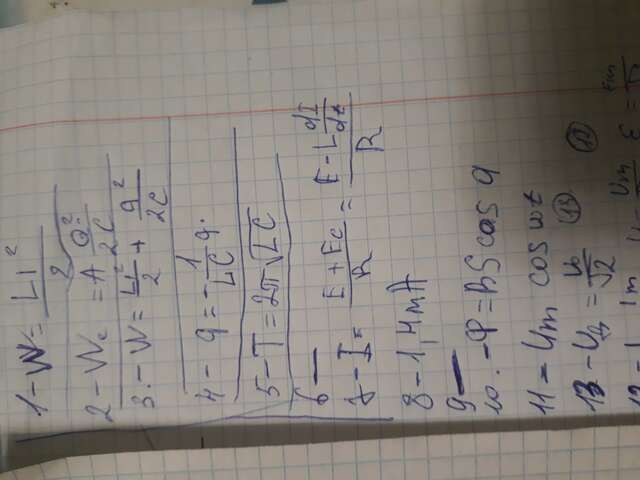 1 - W = LI²/2
2 - Wc = A Q²/2C
3. - W = LI²/2 + q²/2C
4 - q = - 1/LC q.
5 - T = 2π√LC
6 —
7 - I = E + Ec/R = E - L dI/dt / R
8 - 1,4 mA
9 —
10. - Ф = BS cos φ
11 = Um cos wt
13 - Uд = U0/√2 (13) (12)